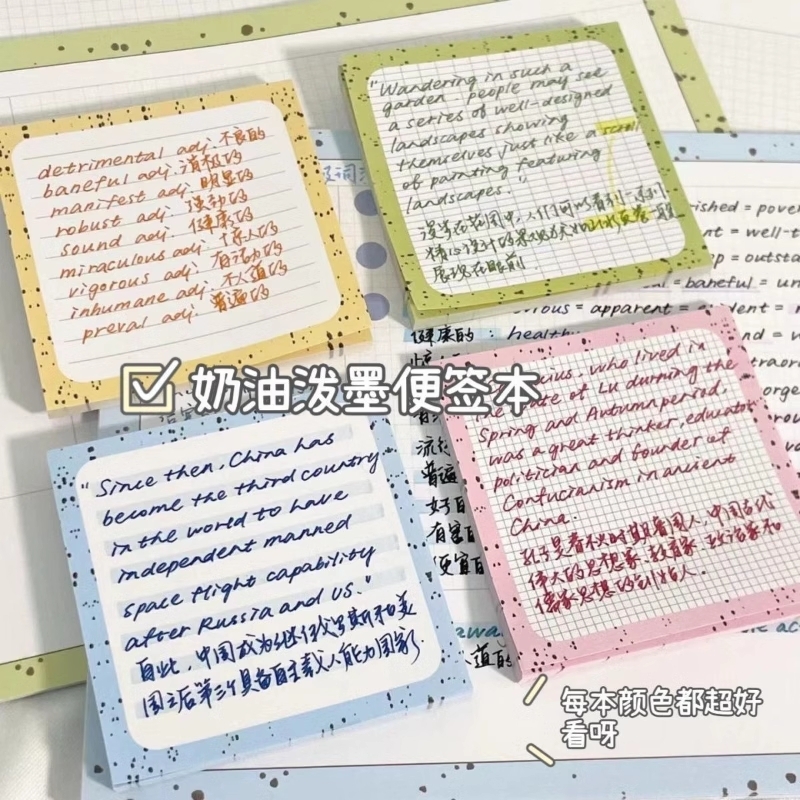 detrimental adj. 不良的
baneful adj. 消极的
manifest adj. 明显的
robust adj. 强劲的
sound adj. 健康的
miraculous adj. 惊人的
vigorous adj. 有活力的
inhumane adj. 不人道的
preval adj. 普遍的
"Wandering in such a
garden. people may see
a series of well-designed
landscapes showing
themselves just like a scroll
of painting featuring
landscapes."
漫步在花园中,人们可以看到一系列
精心设计的景观犹如山水画卷一般
展现在眼前.
奶油泼墨便签本
"Since then, China has
become the third country
in the world to have
independent manned
space flight capability
after Russia and US."
自此,中国成为继俄罗斯和美
国之后第三个具备自主载人能力国家.
ius, who lived in
ate of Lu durning the
Spring and Autumn period,
was a great thinker, educator
politician and founder of
Confucianism in ancient
China.
孔子是春秋时期鲁国人,中国古代
伟大的思想家、教育家、政治家和
儒家思想的创始人.
ished = pover
nt = well-t
p = outsta
l = baneful = un
ious = apparent = evident = m
health
健康的
流行
普遍
好
有害
便宜
道的
每本颜色都超好
看呀